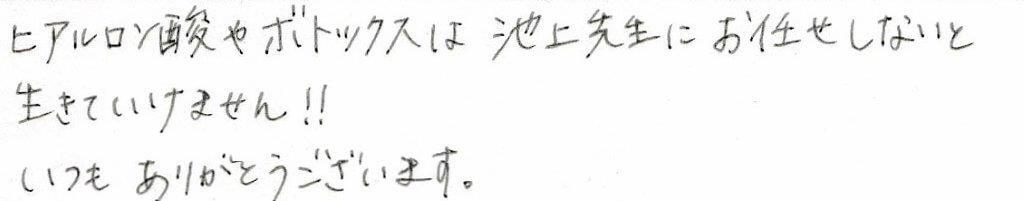 ヒアルロン酸やボトックスは 池上先生にお任せしないと
生きていけません!!
いつも ありがとうございます。